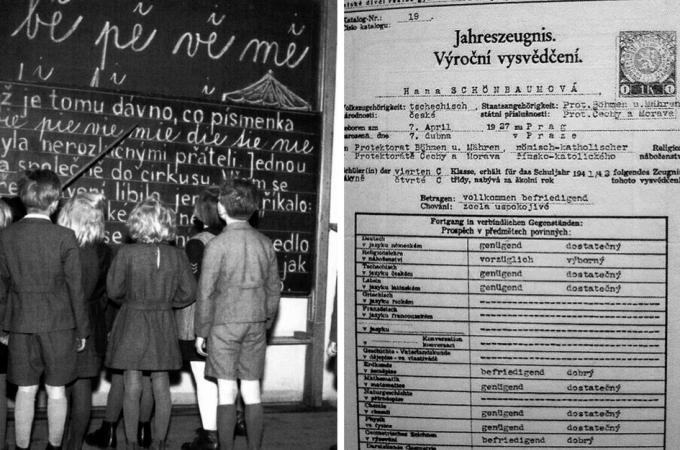 bě pě vě mě
i i i
ž je tomu dávno, co písmenka
pie vie mie die tie nie
yla nerozlučnými přáteli. Jednou
a společně do cirkusu.
se
líbilo
říkalo:
jak
Katalog-Nr.: 19
Číslo katalogu:
Jahreszeugnis.
Výroční vysvědčení.
1K
Hana SCHÖNBAUMOVÁ
Volkszugehörigkeit: tschechisch Staatsangehörigkeit: Prot. Böhmen u. Mähren
národnosti: české státní příslušnosti: Prot. Čechy a Morava
geboren am 7. April 1927 zu Prag
narozená dne 7. dubna v Praze
in Protektorat Böhmen u. Mähren, römisch-katholischer Religio
Protektorátě Čechy a Morava římsko-katolického náboženstv
Schüler(in) der vierten C Klasse, erhält für das Schuljahr 1941/42 folgendes Zeugni
čtvrté C třídy, nabývá za školní rok tohoto vysvědčení
Betragen: vollkommen befriedigend
Chování: zcela uspokojivé
Fortgang in verbindlichen Gegenständen:
Prospěch v předmětech povinných:
Deutsch genügend dostatečný
v jazyku německém
Religionslehre vorzüglich výborný
v náboženství
Tschechisch genügend dostatečný
v jazyku českém
Latein genügend dostatečný
v jazyku latinském
Griechisch
v jazyku řeckém
Französisch
v jazyku francouzském
v jazyku
Konversation
konversaci
Geschichte - Vaterlandskunde
v dějepise - ve vlastivědě
Erdkunde befriedigend dobrý
v zeměpise
Mathematik genügend dostatečný
v matematice
Naturgeschichte
v přírodopise
Chemie genügend dostatečný
v chemii
Physik genügend dostatečný
ve fysice
Geometrisches Zeichnen befriedigend dobrý
v rýsování
Darstellende Geometrie